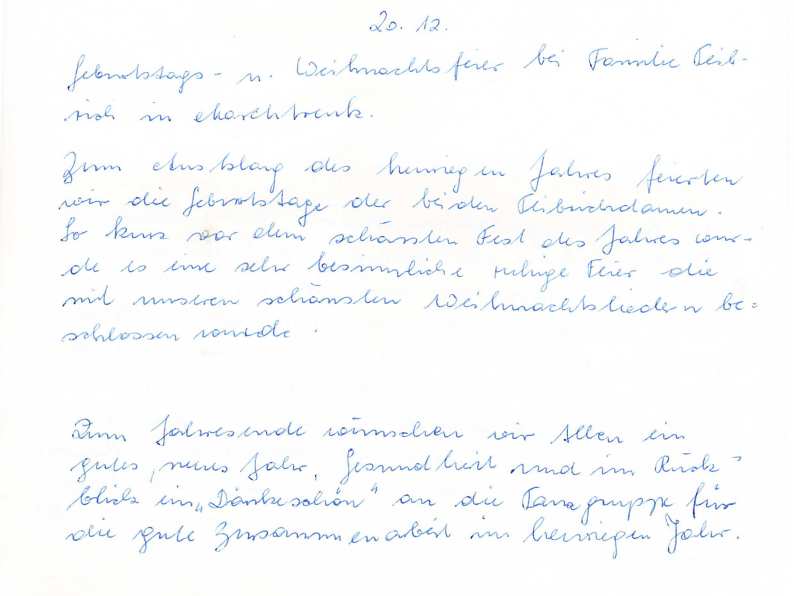 20. 12.
Geburtstags- u. Weihnachtsfeier bei Familie Feib-
rich in Marchtrenk.
Zum Ausklang des heurigen Jahres feierten
wir die Geburtstage der beiden Feibrichdamen.
So kurz vor dem schönsten Fest des Jahres wur-
de es eine sehr besinnliche ruhige Feier die
mit unseren schönsten Weihnachtsliedern be=
schlossen wurde.
Zum Jahresende wünschen wir Allen ein
gutes, neues Jahr, Gesundheit und im Rück=
blick ein „Dankeschön" an die Tanzgruppe für
die gute Zusammenarbeit im heurigen Jahr.